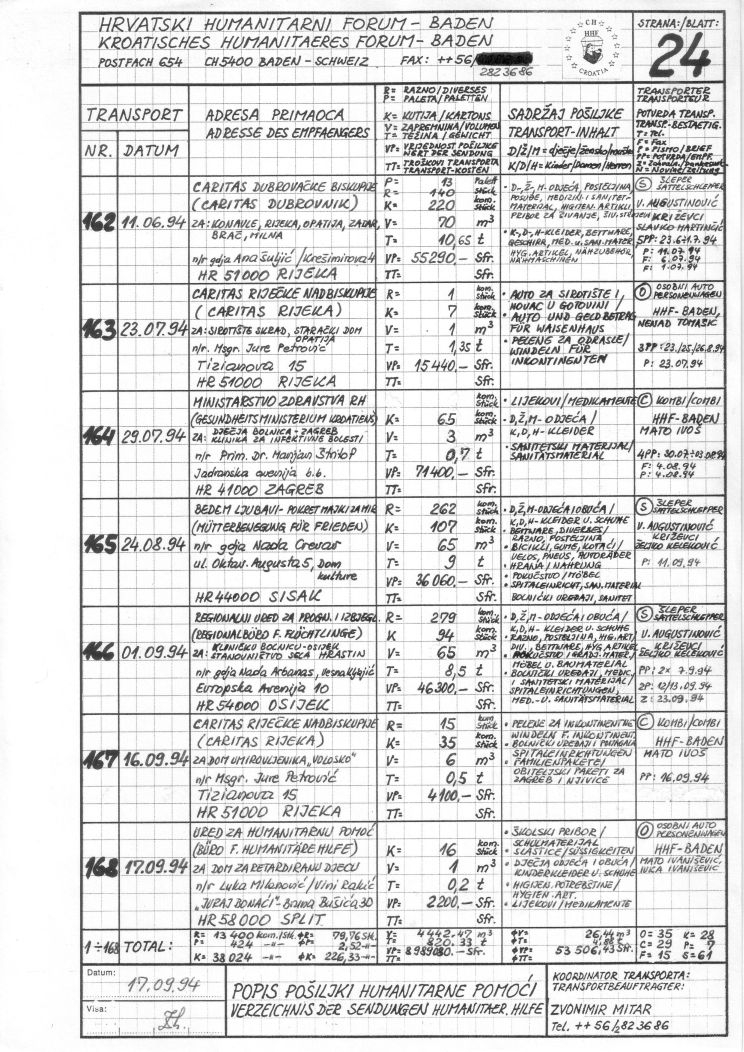 HRVATSKI HUMANITARNI FORUM - BADEN
KROATISCHES HUMANITAERES FORUM - BADEN
POSTFACH 654 CH 5400 BADEN - SCHWEIZ FAX: ++ 56/
282 36 86
CH
HHF
CROATIA
STRANA:/BLATT:
24
TRANSPORT
NR. DATUM
ADRESA PRIMAOCA
ADRESSE DES EMPFAENGERS
R = RAZNO/DIVERSES
P = PALETA/PALETTEN
K = KUTIJA/KARTONS
V = ZAPREMNINA/VOLUMEN
T = TEŽINA/GEWICHT
VP= VRIJEDNOST POŠILJKE
WERT DER SENDUNG
TT= TROŠKOVI TRANSPORTA
TRANSPORT-KOSTEN
SADRŽAJ POŠILJKE
TRANSPORT-INHALT
D/Ž/M = dječje/žensko/muško
K/D/H = Kinder/Damen/Herren
TRANSPORTER
TRANSPORTEUR
POTVRDA TRANSP.
TRANSP.-BESTAETIG.
T = Tel.
F = Fax
P = PISMO/BRIEF
PP= POTVRDA/EMPF.
N = Novine/Zeitung
162 11.06.94
CARITAS DUBROVAČKE BISKUPIJE
(CARITAS DUBROVNIK)
ZA: KONAVLE, RIJEKA, OPATIJA, ZADAR,
BRAČ, MILNA
n/r gdja Ana Šuljić / Krešimirova 4
HR 51000 RIJEKA
P= 13 Palett
R= 140 Stück
K= 220 kom. Stück
V= 70 m³
T= 10,65 t
VP= 55290,- Sfr.
TT= Sfr.
• D-, Ž-, M-ODJEĆA, POSTELJINA,
POSUĐE, MEDICIN. I SANITET-
MATERIJAL, HIGIJEN. ARTIKLI,
PRIBOR ZA ŠIVANJE,
• K-, D-, H-KLEIDER, BETTWARE,
GESCHIRR, MED. U. SAN. MATER.
HYG. ARTIKEL, NÄHZUBEHÖR,
NÄHMASCHINEN
S ŠLEPER
SATTELSCHLEPPER
V. AUGUSTINOVIĆ
KRIŽEVCI
SLAVKO MARTINČIĆ
5PP: 23.6-11.7.94
P: 11.07.94
F: 6.07.94
F: 1.07.94
163 23.07.94
CARITAS RIJEČKE NADBISKUPIJE
(CARITAS RIJEKA)
ZA: SIROTIŠTE SKRAD, STARAČKI DOM
OPATIJA
n/r. Msgr. Jure Petrović
Tizianova 15
HR 51000 RIJEKA
R= 1 kom. Stück
K= 7 kom. Stück
V= 1 m³
T= 1,35 t
VP= 15440,- Sfr.
TT= Sfr.
• AUTO ZA SIROTIŠTE I
NOVAC U GOTOVINI /
• AUTO UND GELDBETRAG
FÜR WAISENHAUS
• PELENE ZA ODRASLE/
WINDELN FÜR
INKONTINENTEN
O OSOBNI AUTO
PERSONENWAGEN
HHF-BADEN,
NENAD TOMAŠIĆ
3PP: 23./25./26.8.94
P: 23.07.94
164 29.07.94
MINISTARSTVO ZDRAVSTVA RH
(GESUNDHEITSMINISTERIUM KROATIENS)
DJEČJA BOLNICA - ZAGREB
ZA: KLINIKA ZA INFEKTIVNE BOLESTI
n/r Prim. Dr.
Jadranska avenija b.b.
HR 41000 ZAGREB
K= 65 kom. Stück
V= 3 m³
T= 0,7 t
VP= 71400,- Sfr.
TT= Sfr.
• LIJEKOVI/MEDIKAMENTE
• D, Ž, M-ODJEĆA/
K, D, H-KLEIDER
• SANITETSKI MATERIJAL/
SANITÄTSMATERIAL
C KOMBI/COMBI
HHF-BADEN
MATO IVOŠ
4PP: 30.07-03.08.94
F: 4.08.94
P: 4.08.94
165 24.08.94
BEDEM LJUBAVI - POKRET MAJKI ZA MIR
(MÜTTERBEWEGUNG FÜR FRIEDEN)
n/r gdja Nada Crevar
ul. Oktav. Augusta 5, Dom
kulture
HR 44000 SISAK
R= 262 kom. Stück
K= 107 kom. Stück
V= 65 m³
T= 9 t
VP= 36060,- Sfr.
TT= Sfr.
• D, Ž, M-ODJEĆA I OBUĆA/
K, D, H-KLEIDER U. SCHUHE
• BETTWARE, DIVERSES/
RAZNO, POSTELJINA
• BICIKLI, GUME, KOTAČI/
VELOS, PNEUS, AUTORÄDER
• HRANA/NAHRUNG
• POKUĆSTVO/MÖBEL
• SPITALEINRICHT., SAN. MATERIAL
BOLNIČKI UREĐAJI, SANITET
S ŠLEPER
SATTELSCHLEPPER
V. AUGUSTINOVIĆ
KRIŽEVCI
ŽELJKO KELEKOVIĆ
P: 11.09.94
166 01.09.94
REGIONALNI URED ZA PROGN. I IZBJEGL.
(REGIONALBÜRO F. FLÜCHTLINGE)
KLINIČKU BOLNICU-OSIJEK
ZA: STANOVNIŠTVO SELA HRASTIN
n/r gdja Nada Arbanas,
Europska Avenija 10
HR 54000 OSIJEK
R= 279 kom. Stück
K 94 kom. Stück
V= 65 m³
T= 8,5 t
VP= 46300,- Sfr.
TT= Sfr.
• D, Ž, M-ODJEĆA I OBUĆA/
K, D, H-KLEIDER U. SCHUHE
• RAZNO, POSTELJINA, HIG. ART/
DIV., BETTWARE, HYG. ARTIKEL
• POKUĆSTVO I GRADJ. MATER./
MÖBEL U. BAUMATERIAL
• BOLNIČKI UREĐAJI, MEDIC.
I SANITETSKI MATERIJAL/
SPITALEINRICHTUNGEN,
MED.- U. SANITÄTSMATERIAL
S ŠLEPER
SATTELSCHLEPPER
V. AUGUSTINOVIĆ
KRIŽEVCI
ŽELJKO KELEKOVIĆ
PP: 2x 7.9.94
2P: 12/13.09.94
Z: 23.09.94
167 16.09.94
CARITAS RIJEČKE NADBISKUPIJE
(CARITAS RIJEKA)
ZA DOM UMIROVLJENIKA „VOLOSKO"
n/r Msgr. Jure Petrović
Tizianova 15
HR 51000 RIJEKA
R= 15 kom. Stück
K= 35 kom. Stück
V= 6 m³
T= 0,5 t
VP= 4100,- Sfr.
TT= Sfr.
• PELENE ZA INKONTINENTNE
WINDELN F. INKONTINENT.
• BOLNIČKI UREĐAJI I POMAGALA
SPITALEINRICHTUNGEN
• FAMILIENPAKETE/
OBITELJSKI PAKETI ZA
ZAGREB I NJIVICE
C KOMBI/COMBI
HHF-BADEN
MATO IVOŠ
PP: 16.09.94
168 17.09.94
URED ZA HUMANITARNU POMOĆ
(BÜRO F. HUMANITÄRE HILFE)
ZA DOM ZA RETARDIRANU DJECU
n/r Luka Milanović / Vini Rakić
„JURAJ BONAĆI" - Bruna Bušića 30
HR 58000 SPLIT
K= 16 kom. Stück
V= 1 m³
T= 0,2 t
VP= 2200,- Sfr.
TT= Sfr.
• ŠKOLSKI PRIBOR/
SCHULMATERIAL
• SLASTICE/SÜSSIGKEITEN
• DJEČJA ODJEĆA I OBUĆA/
KINDERKLEIDER U. SCHUHE
• HIGIJEN. POTREPŠTINE/
HYGIEN. ART.
• LIJEKOVI/MEDIKAMENTE
O OSOBNI AUTO
PERSONENWAGEN
HHF-BADEN
MATO IVANIŠEVIĆ,
IVICA IVANIŠEVIĆ
1÷168 TOTAL:
R= 13 400 kom./Stk. ΦR= 79,76 Stk.
P= 424 -"- ΦP= 2,52 -"-
K= 38 024 -"- ΦK= 226,33 -"-
V= 4442,47 m³
T= 820,33 t
VP= 8989080,- Sfr.
TT=
ΦV= 26,44 m³
ΦT= 4,88 t
ΦVP= 53 506,43 Sfr.
ΦTT=
O = 35 K = 28
C = 29 P = 7
F = 15 S = 61
Datum:
17.09.94
Visa:
POPIS POŠILJKI HUMANITARNE POMOĆI
VERZEICHNIS DER SENDUNGEN HUMANITAER. HILFE
KOORDINATOR TRANSPORTA:
TRANSPORTBEAUFTRAGTER:
ZVONIMIR MITAR
Tel. ++ 56/282 36 86